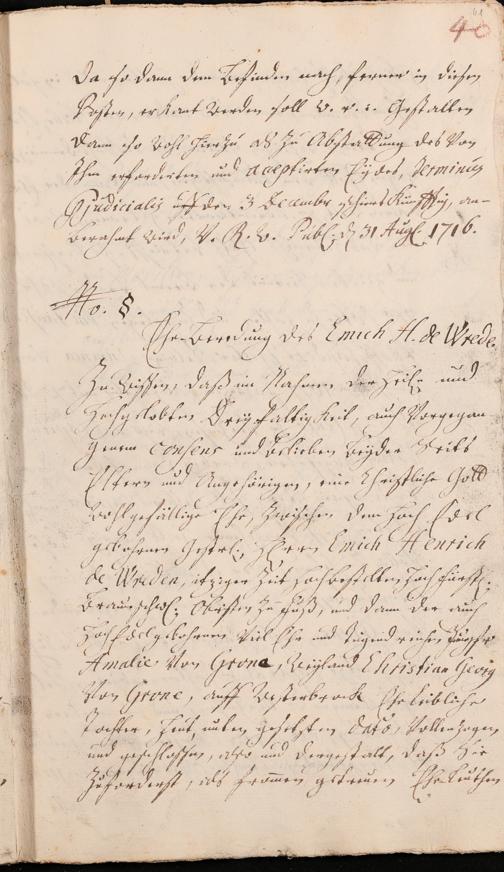 40
Da so dann dem Befinden nach, ferner in diesen
Posten, erkant werden soll V. R. W. Gestalten
dann so wohl hierzu als zu Abstattung des von
Ihm erforderten und acceptirten Eydes, Terminus
Praejudicialis auf den 3 Decembr schierskünfftig, an-
berahmt wird, V. R. W. Publ: d 31 Aug: 1716.
No. 8.
Ehe-Beredung des Emich H. de Wrede.
Zu wissen, daß im Nahmen der Heil: und
Hochgelobten Dreyfaltigkeit, auch vorgegan-
genem consens und belieben beyder Seits
Eltern und Angehörigen, eine Christliche Gott
wohlgefällige Ehe, zwischen dem Hoch Edel
gebohrnen Gestr:, Herrn Emich Henrich
de Wreden, itziger Zeit Hochbestelten Hochfürstl:
Braunschw: Obristen zu Fuß, und dann der auch
HochEdelgebohrnen Viel Ehr und Tugendreichen Jungfr
Amalie von Grone, Weyland Christian Georg
von Grone, auff Westerbrack Eheleibliche
Tochter, heut unten gesetzten dato, vollenzogen
und geschlossen, also und dergestalt, daß Sie
zuforderst, als frommen getreuen Eheleuthen